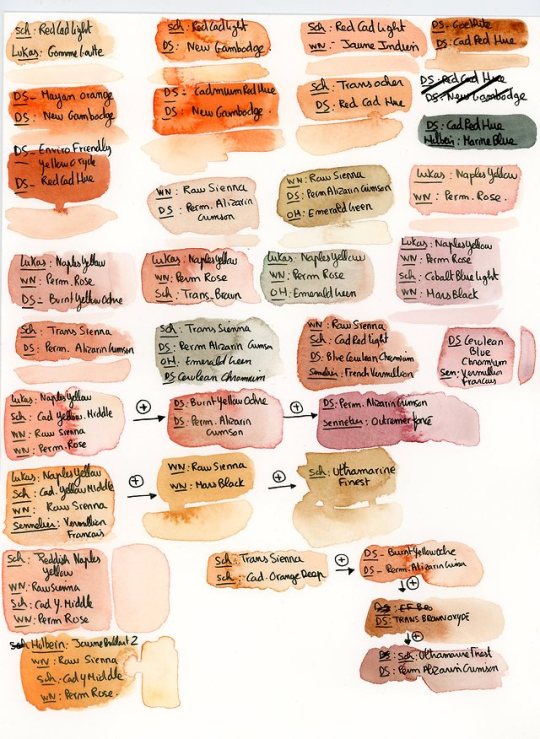 Sch: Red Cad Light
Lukas: Gomme Gutte
Sch: Red Cad Light
DS: New Gambodge
Sch: Red Cad Light
WN: Jaune Indien
DS: Goethite
DS: Cad Red Hue
DS_ Mayan Orange
DS: New Gambodge
DS_ Cadmium Red Hue
DS: New Gambodge
Sch: Trans ocher
DS: Red Cad Hue
DS: Red Cad Hue
DS: New Gambodge
DS: Cad Red Hue
Holbein: Marine Blue
DS_ Enviro Friendly
_ Yellow Oxyde
DS_ Red Cad Hue
WN: Raw Sienna
DS: Perm. Alizarin
Crimson
WN: Raw Sienna
DS: Perm Alizarin Crimson
OH: Emerald Green
Lukas: Naples Yellow
WN: Perm. Rose.
Lukas: Naples Yellow
WN: Perm. Rose
DS: Burnt Yellow Ochre
Lukas: Naples Yellow
WN: Perm Rose
Sch: Trans. Brown
Lukas: Naples Yellow
WN: Perm Rose
OH: Emerald Green
Lukas: Naples Yellow
WN: Perm Rose
Sch: Cobalt Blue Light
WN: Mars Black
Sch: Trans Sienna
DS: Perm. Alizarin Crimson
Sch: Trans Sienna
DS: Perm Alizarin Crimson
OH: Emerald Green
DS: Cerulean Chromium
WN: Raw Sienna
Sch: Cad Red Light
DS: Blue Cerulean Chromium
Sennelier: French Vermillion
DS Cerulean
Blue
Chromium
Sen: Vermillion
Francais
Lukas: Naples Yellow
Sch: Cad Yellow Middle
WN: Raw Sienna
WN: Perm Rose
DS: Burnt Yellow Ochre
DS: Perm. Alizarin
Crimson
DS: Perm. Alizarin Crimson
Sennelier: Outremer foncé
Lukas: Naples Yellow
Sch: Cad. Yellow Middle
WN: Raw Sienna
Sennelier: Vermillion
Francais
WN: Raw Sienna
WN: Mars Black
Sch: Ulthamarine
Finest
Sch: Reddish Naples
Yellow
WN: Raw Sienna
Sch: Cad Y. Middle
WN: Perm Rose
Sch: Trans Sienna
Sch: Cad. Orange Deep
DS_ Burnt Yellow Ochre
DS_ Perm. Alizarin Crimson
DS: TRANS BROWN OXYDE
DS: Sch: Ulthamarine Finest
DS: Perm Alizarin Crimson
Sch Holbein: Jaune Brillant 2
WN: Raw Sienna
Sch: Cad Y Middle
WN: Perm Rose.